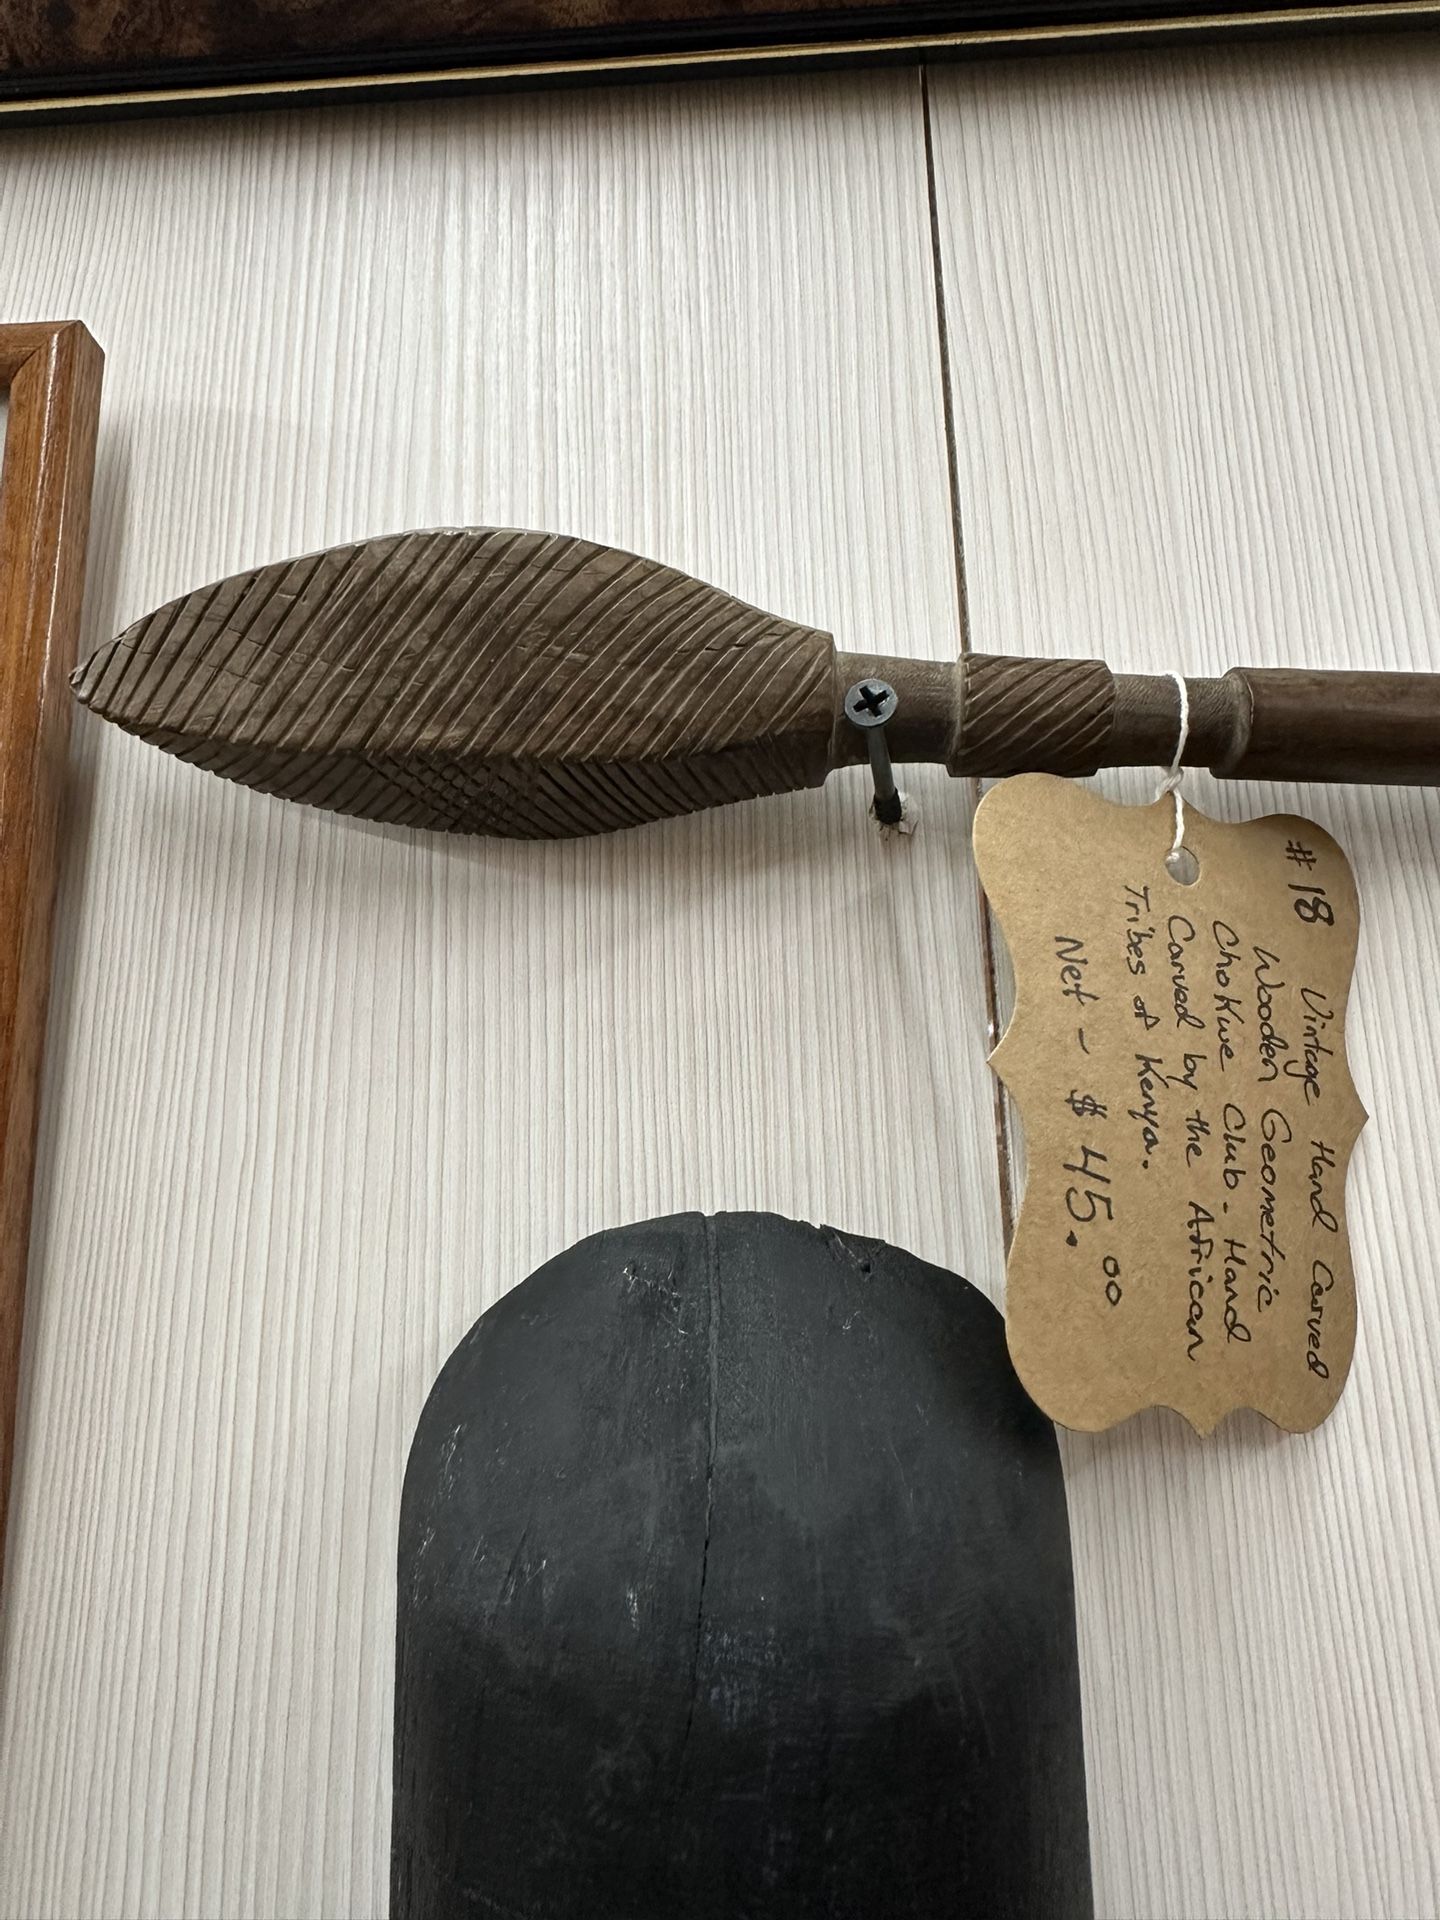 #18 Vintage Hand Carved
Wooden Geometric
Chokwe Club - Hand
Carved by the African
Tribes of Kenya.
Net - $45.00